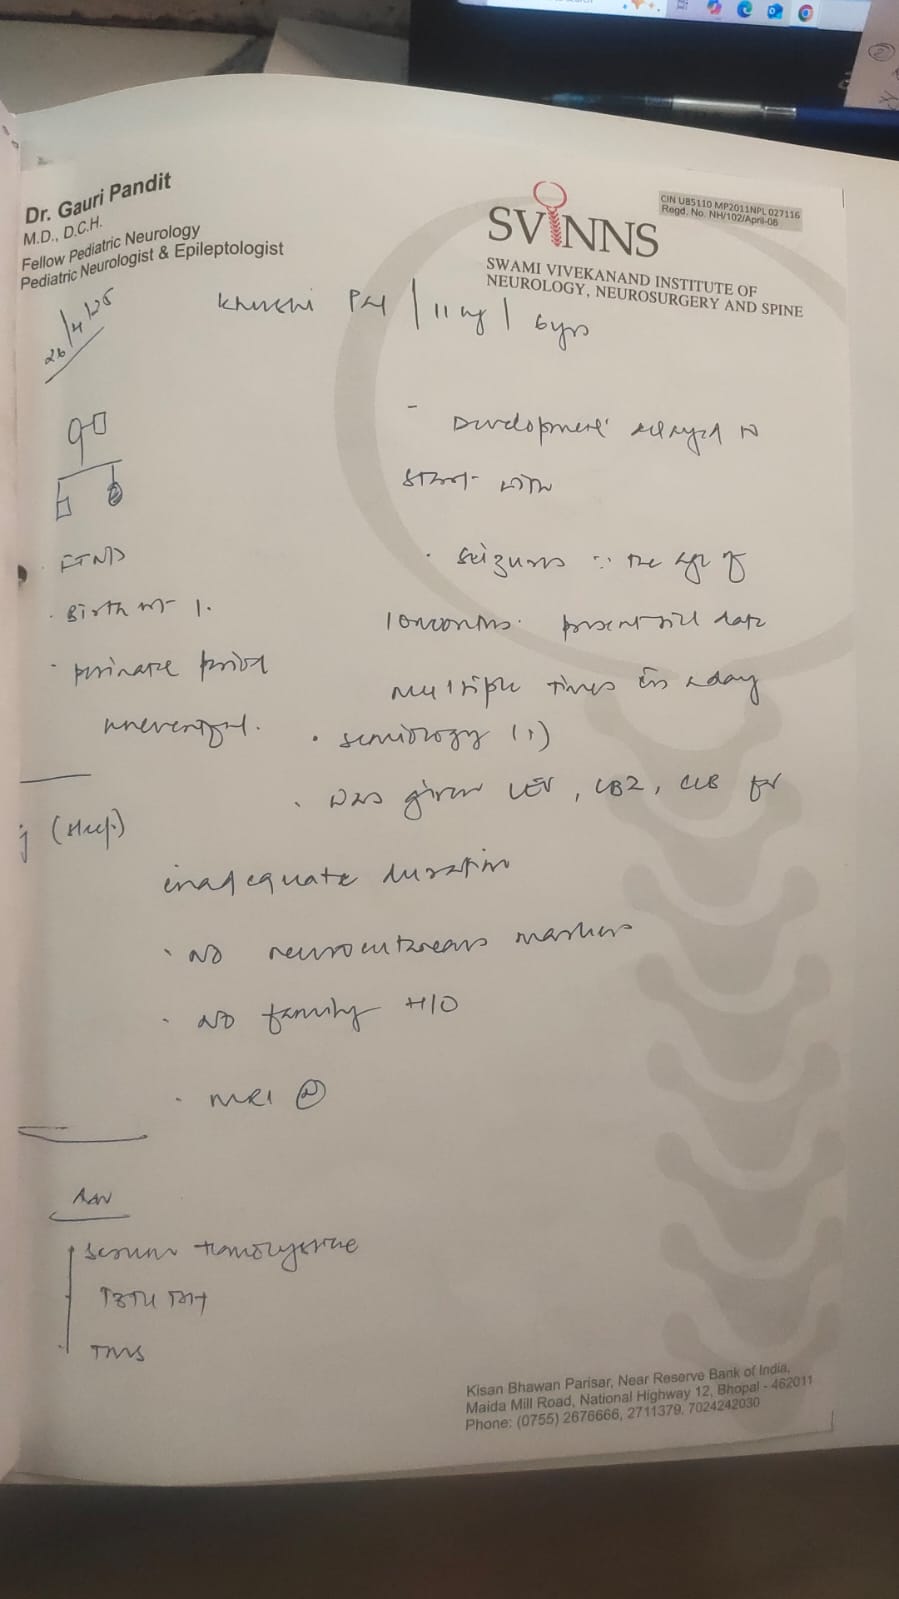 Dr. Gauri Pandit
M.D., D.C.H.
Fellow Pediatric Neurology
Pediatric Neurologist & Epileptologist
SVINNS
CIN U85110 MP2011NPL 027116
Regd. No. NH/102/April-08
SWAMI VIVEKANAND INSTITUTE OF
NEUROLOGY, NEUROSURGERY AND SPINE
26/4/25
| 11 kg | 6yrs
FTND
· Birth wt 1.
· perinatal period
uneventful.
- Development delayed to
start with
· seizures ∵ the age of
10months. present till date
multiple times in a day
· semiology (1)
· was given LEV, CBZ, CLB for
inadequate duration
· No neurocutaneous markers
· No family H/O
· MRI Ⓝ
Adv
serum homocysteine
TMS
Kisan Bhawan Parisar, Near Reserve Bank of India,
Maida Mill Road, National Highway 12, Bhopal - 462011
Phone: (0755) 2676666, 2711379, 7024242030